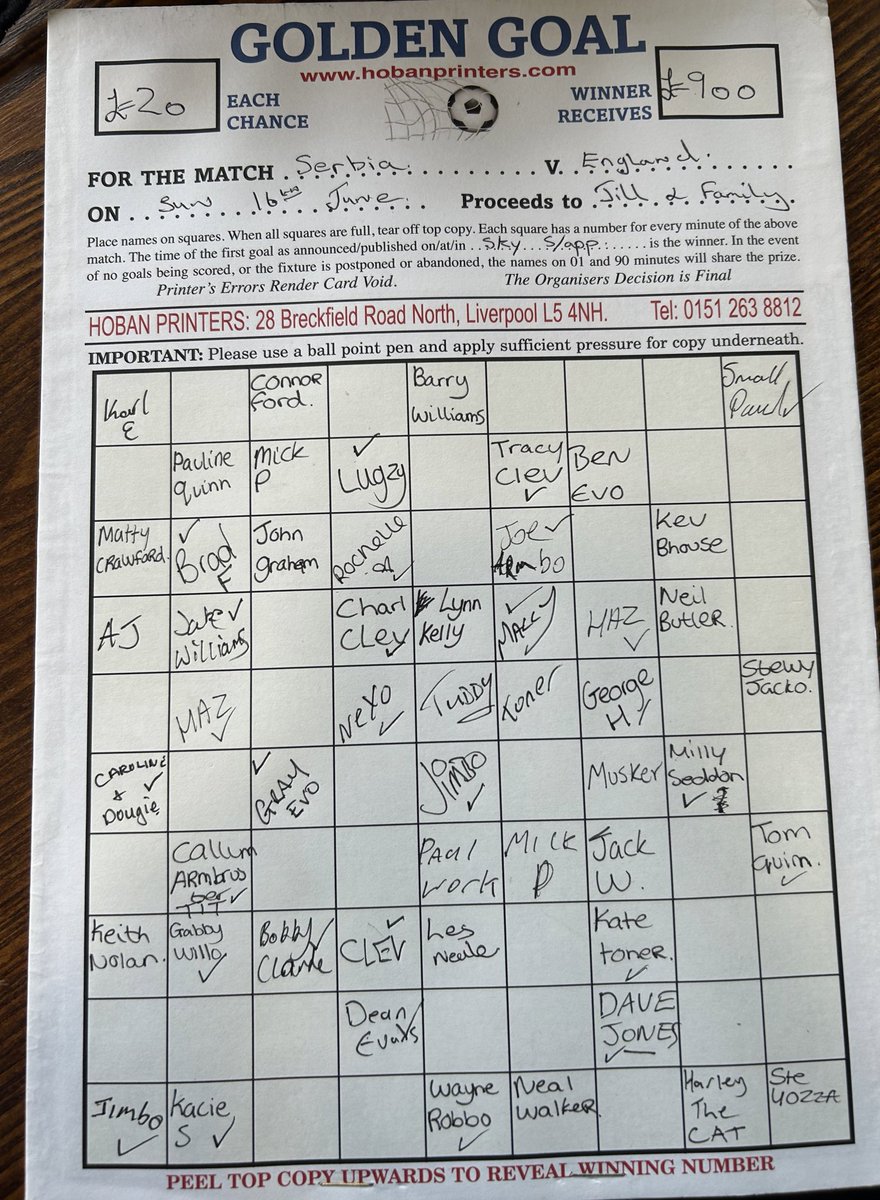 GOLDEN GOAL
www.hobanprinters.com
£20
EACH
CHANCE
WINNER
RECEIVES
£900
FOR THE MATCH Serbia V. England.
ON Sun 16th June Proceeds to Jill & Family
Place names on squares. When all squares are full, tear off top copy. Each square has a number for every minute of the above
match. The time of the first goal as announced/published on/at/in Sky S/app is the winner. In the event
of no goals being scored, or the fixture is postponed or abandoned, the names on 01 and 90 minutes will share the prize.
Printer's Errors Render Card Void. The Organisers Decision is Final
HOBAN PRINTERS: 28 Breckfield Road North, Liverpool L5 4NH. Tel: 0151 263 8812
IMPORTANT: Please use a ball point pen and apply sufficient pressure for copy underneath.
Karl
E
Connor
Ford.
Barry
Williams
Small
Paul
Pauline
Quinn
Mick
P
Lugzy
Tracy
Clev
BEN
EVO
Matty
Crawford.
Brad
F
John
graham
Rochelle
Joe
Armbo
Kev
Bhouse
AJ
Jake
Williams
Charl
Clev
Lynn
Kelly
MALLY
MAZ
Neil
Butler.
MAZ
NEXO
TUDDY
Toner
George
H
Stewy
Jacko.
CAROLINE
&
Dougie
GRAY
EVO
JIMBO
Musker
Milly
Seddon
Callum
ARMbrus
ter
TIT
PAUL
WORK
MICK
P
Jack
W.
Tom
Quim.
Keith
Nolan.
Gabby
Willo
Bobby
Clarke
CLEV
Les
Neale
Kate
toner.
Dean
Evans
DAVE
JONES
JIMBO
Kacie
S
Wayne
Robbo
Neal
Walker.
Harley
The
CAT
Ste
YOZZA
PEEL TOP COPY UPWARDS TO REVEAL WINNING NUMBER